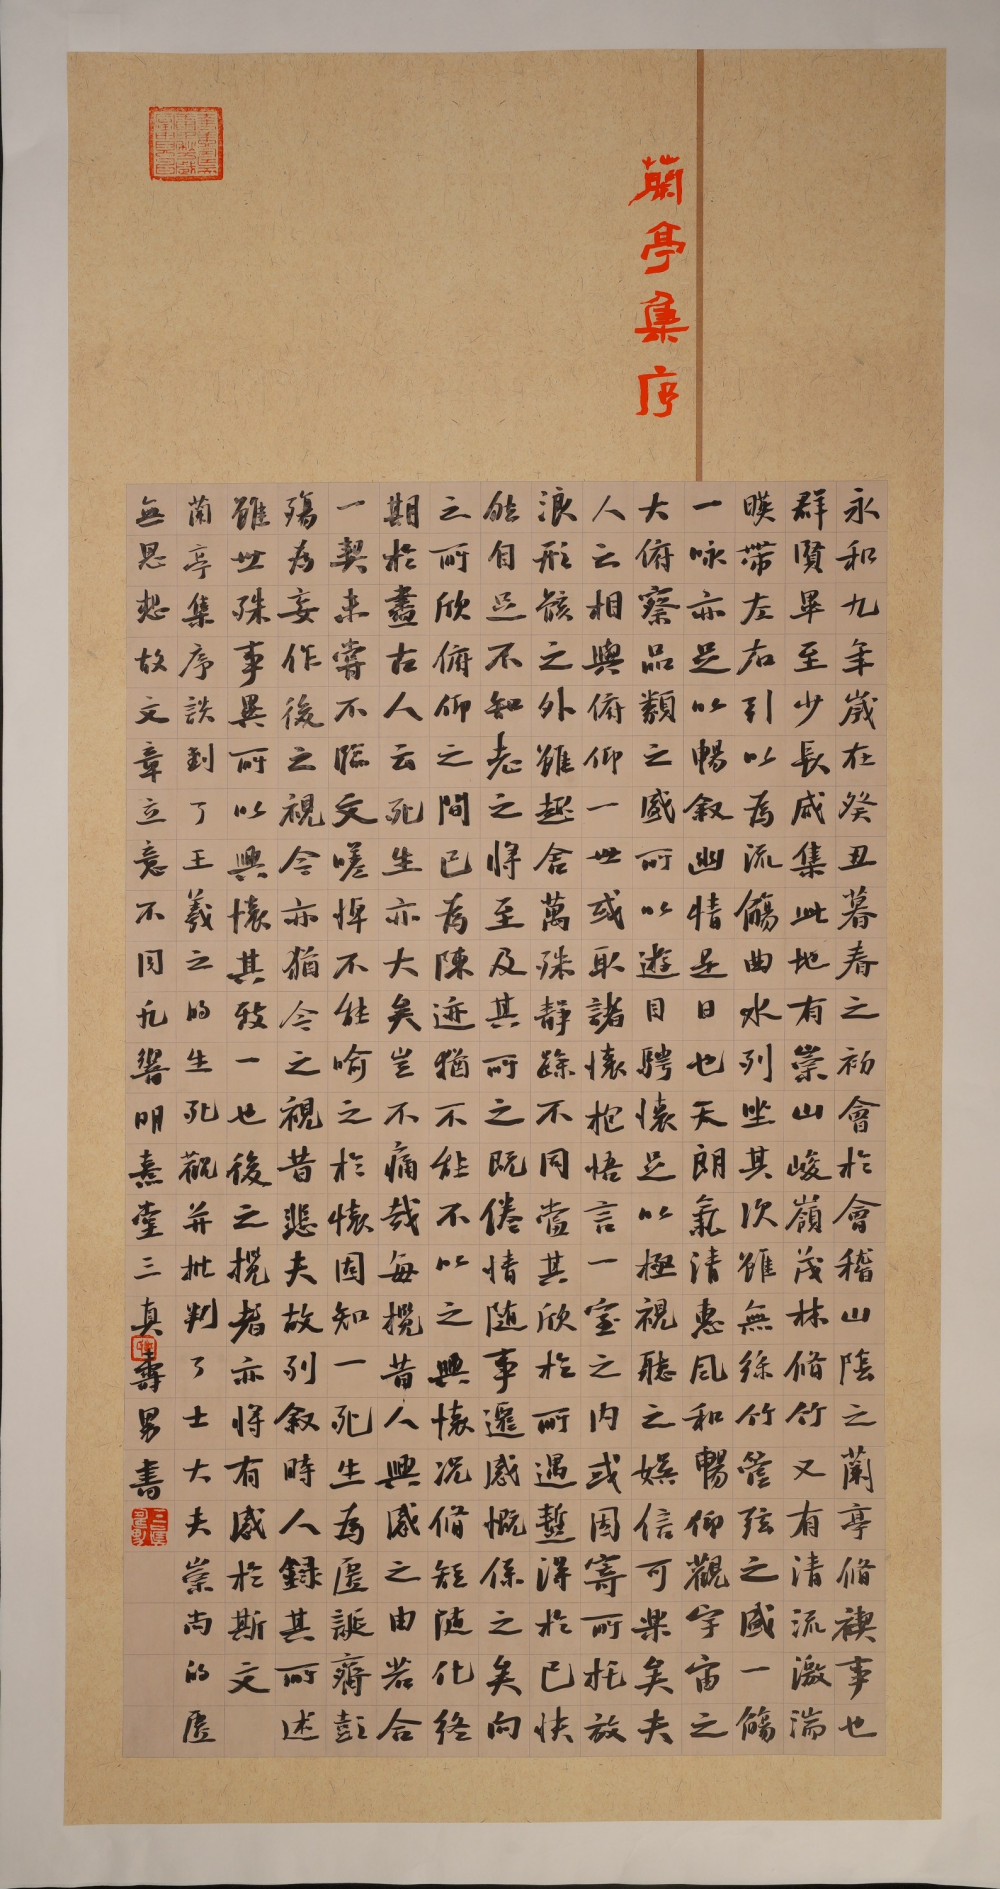 蘭亭集序
永和九年歲在癸丑暮春之初會於會稽山陰之蘭亭脩禊事也
群賢畢至少長咸集此地有崇山峻嶺茂林脩竹又有清流激湍
暎帶左右引以為流觴曲水列坐其次雖無絲竹管弦之盛一觴
一咏亦足以暢叙幽情是日也天朗氣清惠風和暢仰觀宇宙之
大俯察品類之盛所以遊目騁懷足以極視聽之娛信可樂矣夫
人之相與俯仰一世或取諸懷抱悟言一室之內或因寄所托放
浪形骸之外雖趣舍萬殊靜躁不同當其欣於所遇蹔得於己快
然自足不知老之將至及其所之既倦情随事遷感慨係之矣向
之所欣俯仰之間已為陳迹猶不能不以之興懷况脩短随化終
期於盡古人云死生亦大矣豈不痛哉每攬昔人興感之由若合
一契未嘗不臨文嗟悼不能喻之於懷固知一死生為虛誕齊彭
殤為妄作後之視今亦猶今之視昔悲夫故列叙時人録其所述
雖世殊事異所以興懷其致一也後之攬者亦將有感於斯文
蘭亭集序談到了王羲之的生死觀并批判了士大夫崇尚的虛
無思想故文章立意不同凡響明熹堂三真壽男書